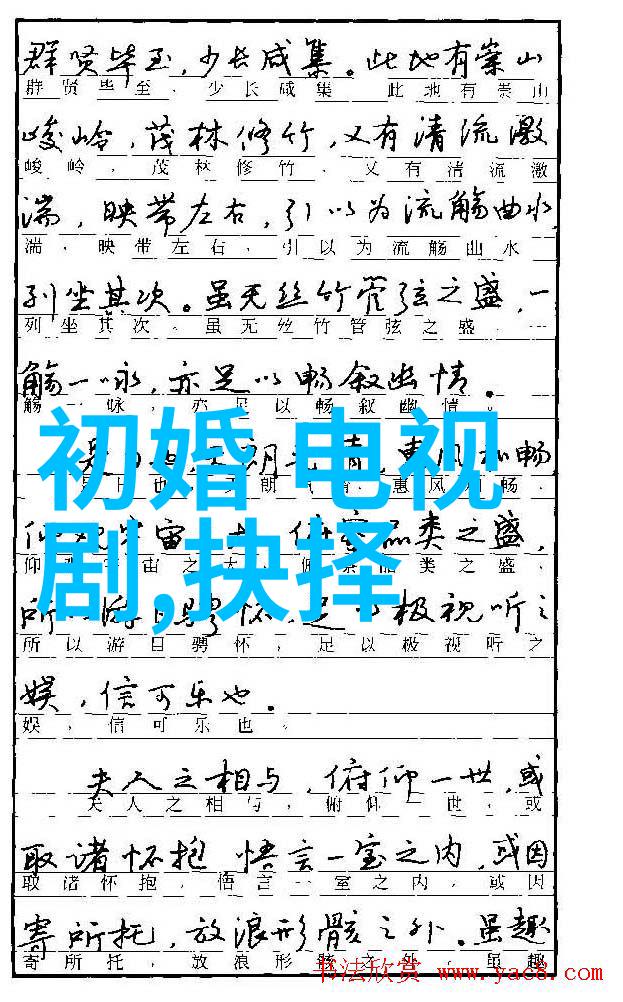 群贤毕至，少长咸集。此地有崇山
群贤毕至，少长咸集。此地有崇山
峻岭，茂林修竹，又有清流激
峻岭，茂林修竹，又有清流激
湍，映带左右，引以为流觞曲水，
湍，映带左右，引以为流觞曲水
列坐其次。虽无丝竹管弦之盛，一
列坐其次。虽无丝竹管弦之盛，一
觞一咏，亦足以畅叙幽情。
觞一咏，亦足以畅叙幽情。
初婚 电视
剧,抉择
是日也，朗气清，惠风和畅
日也，朗气清，惠风和畅，
仰观宇宙之大，俯察品类之盛，
仰宇宙之大，俯察品类之盛，
所以游目骋怀，足以极视听之
所以游目骋怀，足以极视听之
娱，信可乐也。
娱，信可乐也。
夫人之相与，俯仰一世，或
夫人之相与，俯仰一世，或
取诸怀抱，悟言一室之内，或因
取诸怀抱，悟言一室之内，或因
寄所托，放浪形骸之外。虽趣
寄所托，放浪形骸之外。虽趣
书法欣赏 www.yac8.com